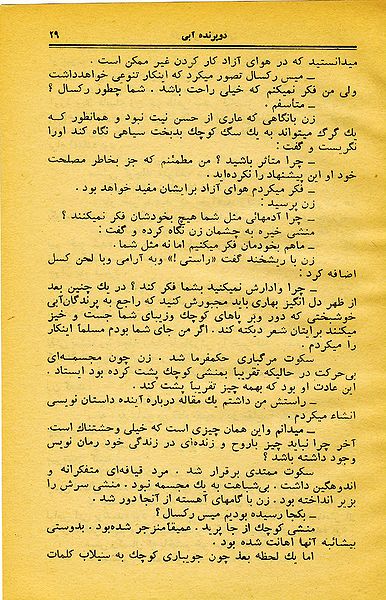 دوپرنده آبی
۲۹
میدانستید که در هوای آزاد کار کردن غیر ممکن است .
ــ میس رکسال تصور میکرد که اینکار تنوعی خواهدداشت
ولی من فکر نمیکنم که خیلی راحت باشد . شما چطور رکسال ؟
ــ متاسفم .
زن بانگاهی که عاری از حسن نیت نبود و همانطور کــه
یك گرگ میتواند به یك سگ کوچك بدبخت سیاهی نگاه کند اورا
نگریست و گفت :
ــ چرا متاثر باشید ؟ من مطمئنم که جز بخاطر مصلحت
خود او این پیشنهاد را نکرده‌اید .
ــ فکر میکردم هوای آزاد برایشان مفید خواهد بود .
زن پرسید :
ــ چرا آدمهائی مثل شما هیچ بخودشان فکر نمیکنند ؟
منشی خیره به چشمان زن نگاه کرده و گفت :
ــ ماهم بخودمان فکر میکنیم اما نه مثل شما .
زن با ریشخند گفت «راستی !» وبه آرامی وبا لحن کسل
اضافه کرد :
ــ چرا وادارش نمیکنید بشما فکر کند ؟ در یك چنین بعد
از ظهر دل انگیز بهاری باید مجبورش کنید که راجع به پرندگان‌آبی
خوشبختی که دور وبر پاهای کوچك وزیبای شما جست و خیز
میکنند برایتان شعر دیکته کند . اگر من جای شما بودم مسلما اینکار
را میکردم .
سکوت مرگباری حکمفرما شد . زن چون مجسمه‌ای
بی‌حرکت در حالیکه تقریبا بمنشی کوچك پشت کرده بود ایستاد .
این عادت او بود که بهمه چیز تقریبا پشت کند .
ــ راستش من داشتم یك مقاله درباره آینده داستان نویسی
انشاء میکردم .
ــ میدانم واین همان چیزی است که خیلی وحشتنك است.
آخر چرا نباید چیز باروح و زنده‌ای در زندگی خود رمان نویس
وجود داشته باشد ؟
سکوت ممتدی برقرار شد . مرد قیافه‌ای متفکرانه و
اندوهگین داشت . بی‌شباهت به یك مجسمه نبود . منشی سرش را
بزیر انداخته بود . زن با گامهای آهسته از آنجا دور شد .
ــ بکجا رسیده بودیم میس رکسال ؟
منشی کوچك از جا پرید . عمیقا‌منزجر شده‌بود . بدوستی
بیشائبه آنها اهانت شده بود .
اما یك لحظه بعد چون جویباری کوچك به سیلاب کلمات